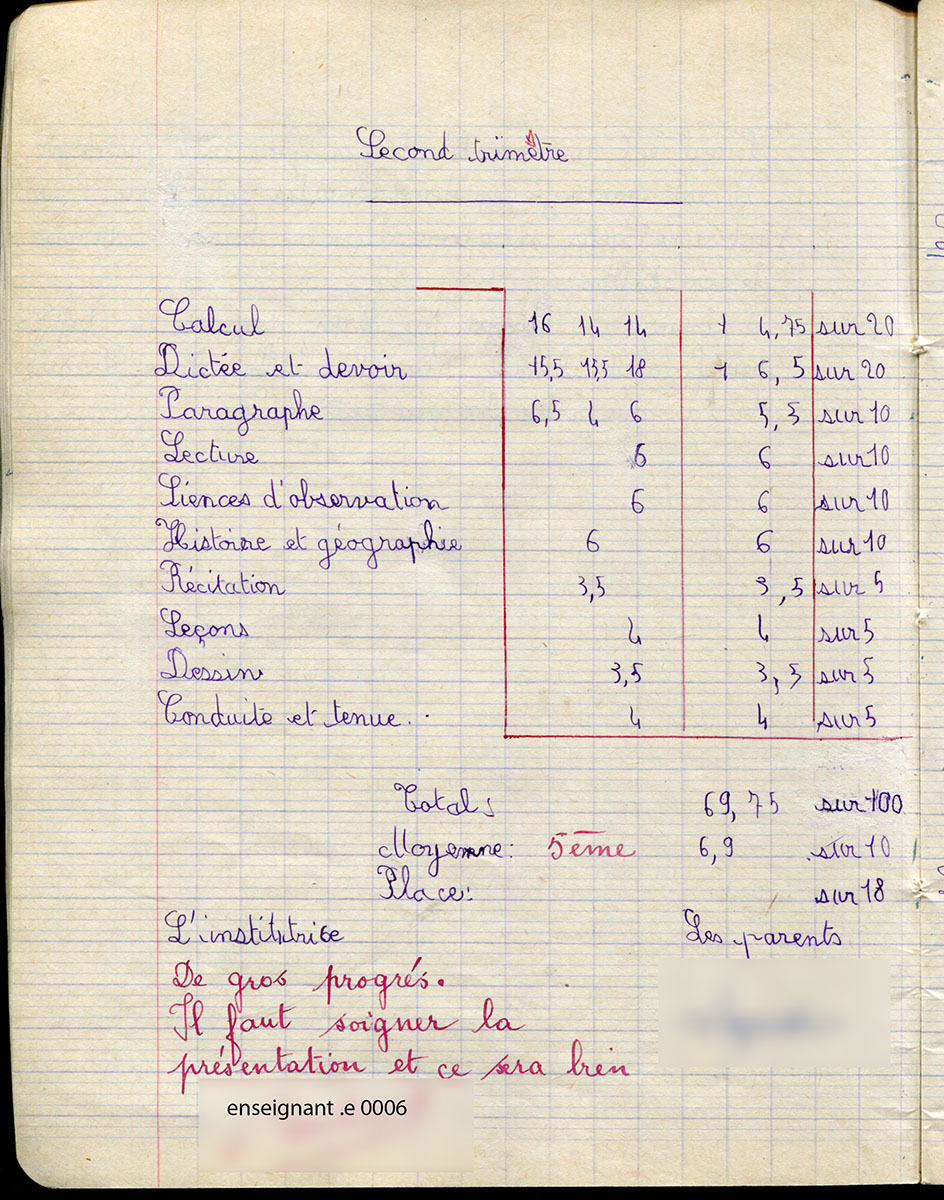 Second trimètre
Calcul 16 14 14 1 4,75 sur 20
Dictée et devoir 15,5 15,5 18 1 6,5 sur 20
Paragraphe 6,5 4 6 5,5 sur 10
Lecture 6 6 sur 10
Siences d'observation 6 6 sur 10
Histoire et géographie 6 6 sur 10
Récitation 3,5 3,5 sur 5
Leçons 4 4 sur 5
Dessin 3,5 3,5 sur 5
Conduite et tenue. 4 4 sur 5
Total: 69,75 sur 100
Moyenne: 5ème 6,9 sur 10
Place: sur 18
L'institutrice Les parents
De gros progrés.
Il faut soigner la
présentation et ce sera bien
enseignant .e 0006